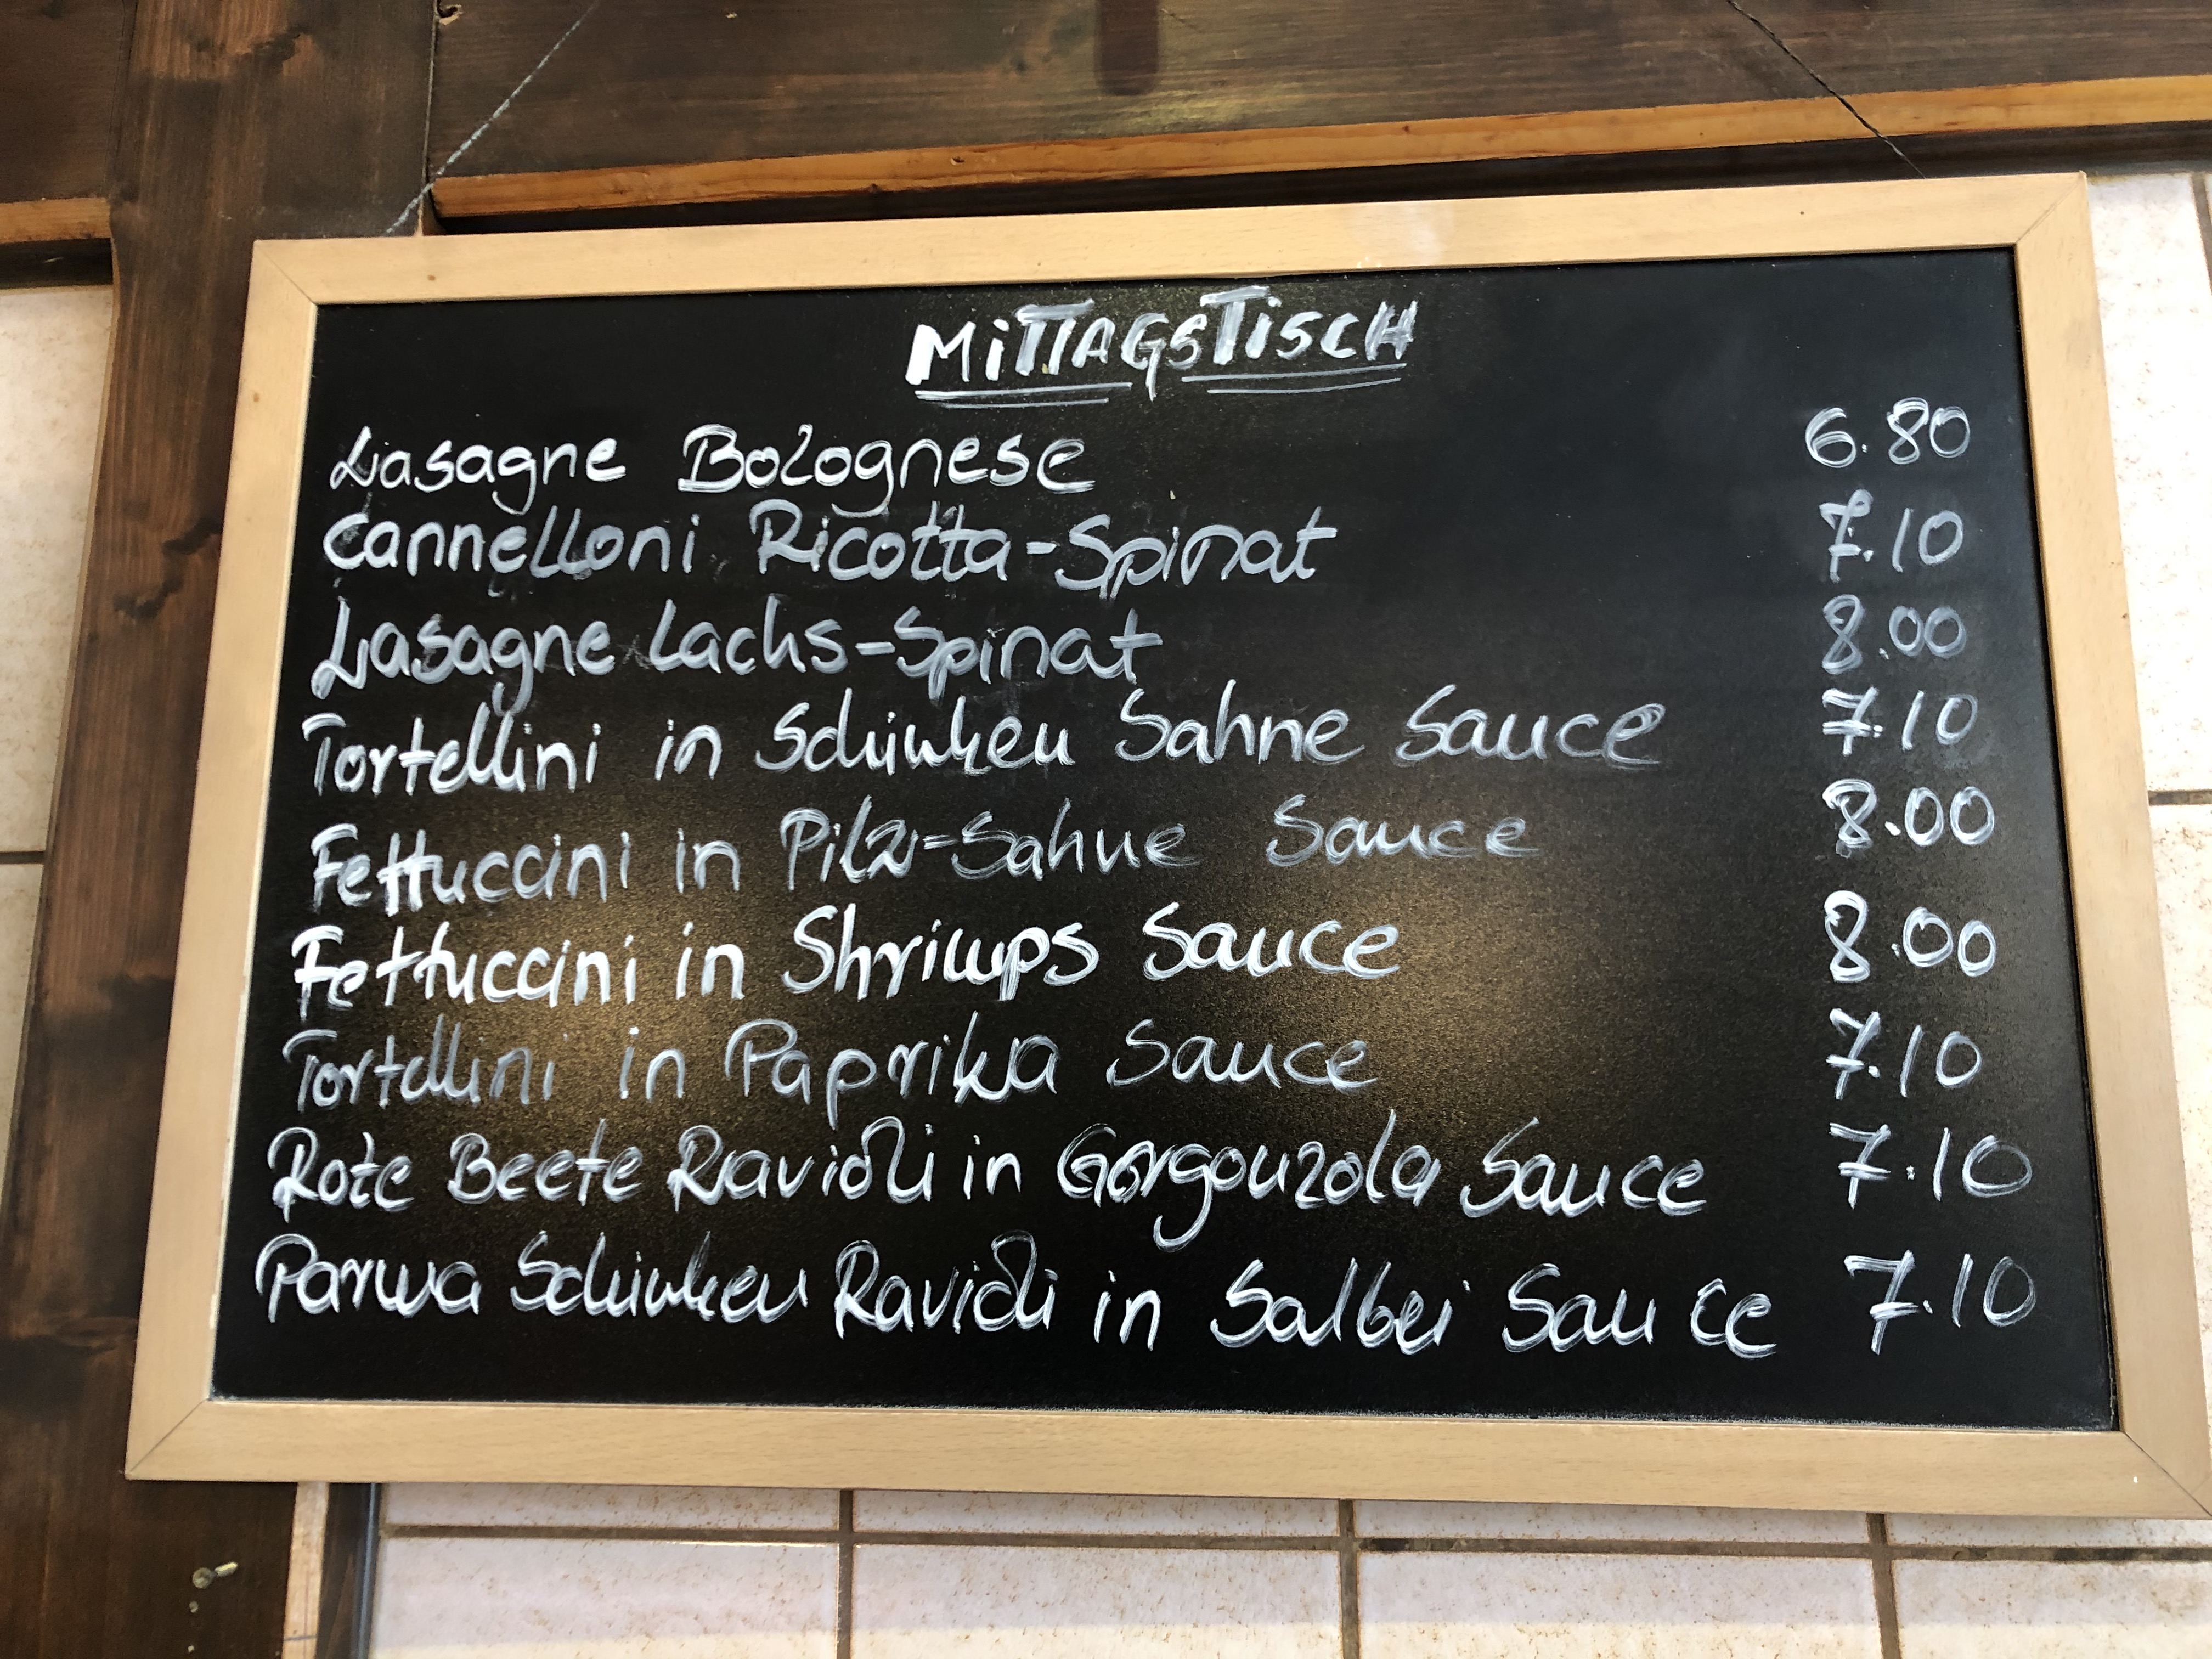 MiTTAGSTiSCH
Lasagne Bolognese 6.80
Cannelloni Ricotta-Spinat 7.10
Lasagne Lachs-Spinat 8.00
Tortellini in Schinken Sahne Sauce 7.10
Fettuccini in Pilz-Sahne Sauce 8.00
Fettuccini in Shrimps Sauce 8.00
Tortellini in Paprika Sauce 7.10
Rote Beete Ravioli in Gorgonzola Sauce 7.10
Parma Schinken Ravioli in Salbei Sauce 7.10